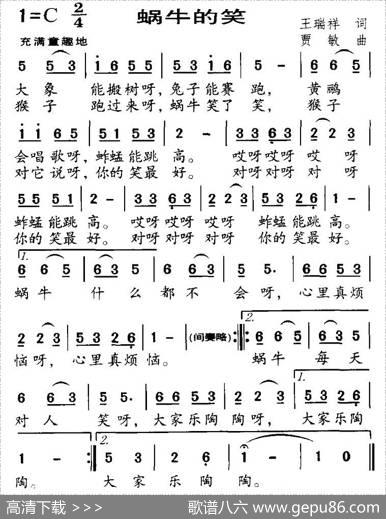 1=C 2/4 蜗牛的笑
充满童趣地
王瑞祥 词
贾敏 曲
5 5 3 | i 6 5 5 | 5 1 5 3 | 5 - | 6 6 5 |
大象 能搬树呀,兔子能赛 跑, 黄鹂
猴子 跑过来呀,蜗牛笑了 笑, 猴子
i i 6 5 | 5 1 5 3 | 2 - | 3 3 6 | 2 2 3 |
会唱歌呀,蚱蜢能跳 高。 哎呀哎呀 哎 呀
对它说呀,你的笑最 好。 对呀对呀 对 呀
5 5 5 1 | 2 - |
蚱蜢能跳 高。 哎呀哎呀 哎呀 蚱蜢能跳 高。
你的笑最 好。 对呀对呀 对呀 你的笑最 好。
1.
6 6 5 | 6 6 3 | 6 3 | 5 5. | 5 3 2 6 |
蜗牛 什么都不 会呀,心里真烦
2.
2 - | 5 3 2 6 | 1 - | (间奏略) 6 6 5 | 6 6 5 |
恼呀,心里真烦 恼。 蜗牛 每天
1.
6 6 3 | 5 5. | 5 3 2 6 | 5 3 2 6 |
对人 笑呀,大家乐陶 陶呀,大家乐陶
2.
1 - 5 3 2 6 | 1 - | 1 0
陶。 大家乐陶 陶。
高清下载 >>> 歌谱八六 www.gepu86.com